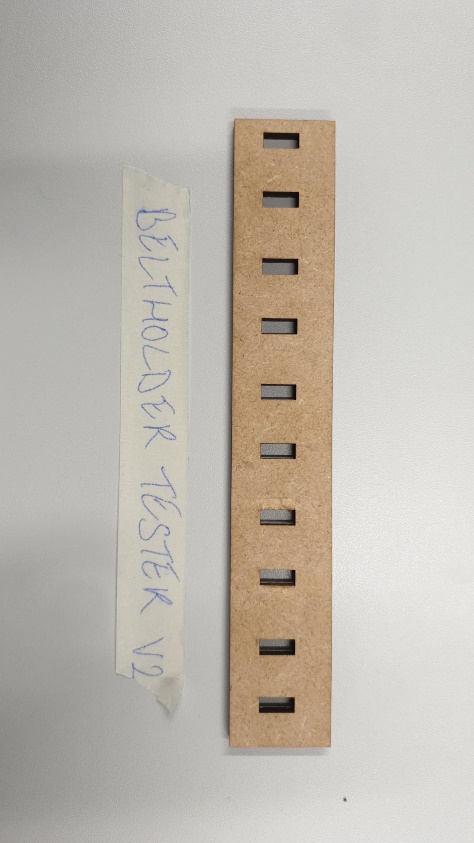 BELTHOLDER TESTER V2